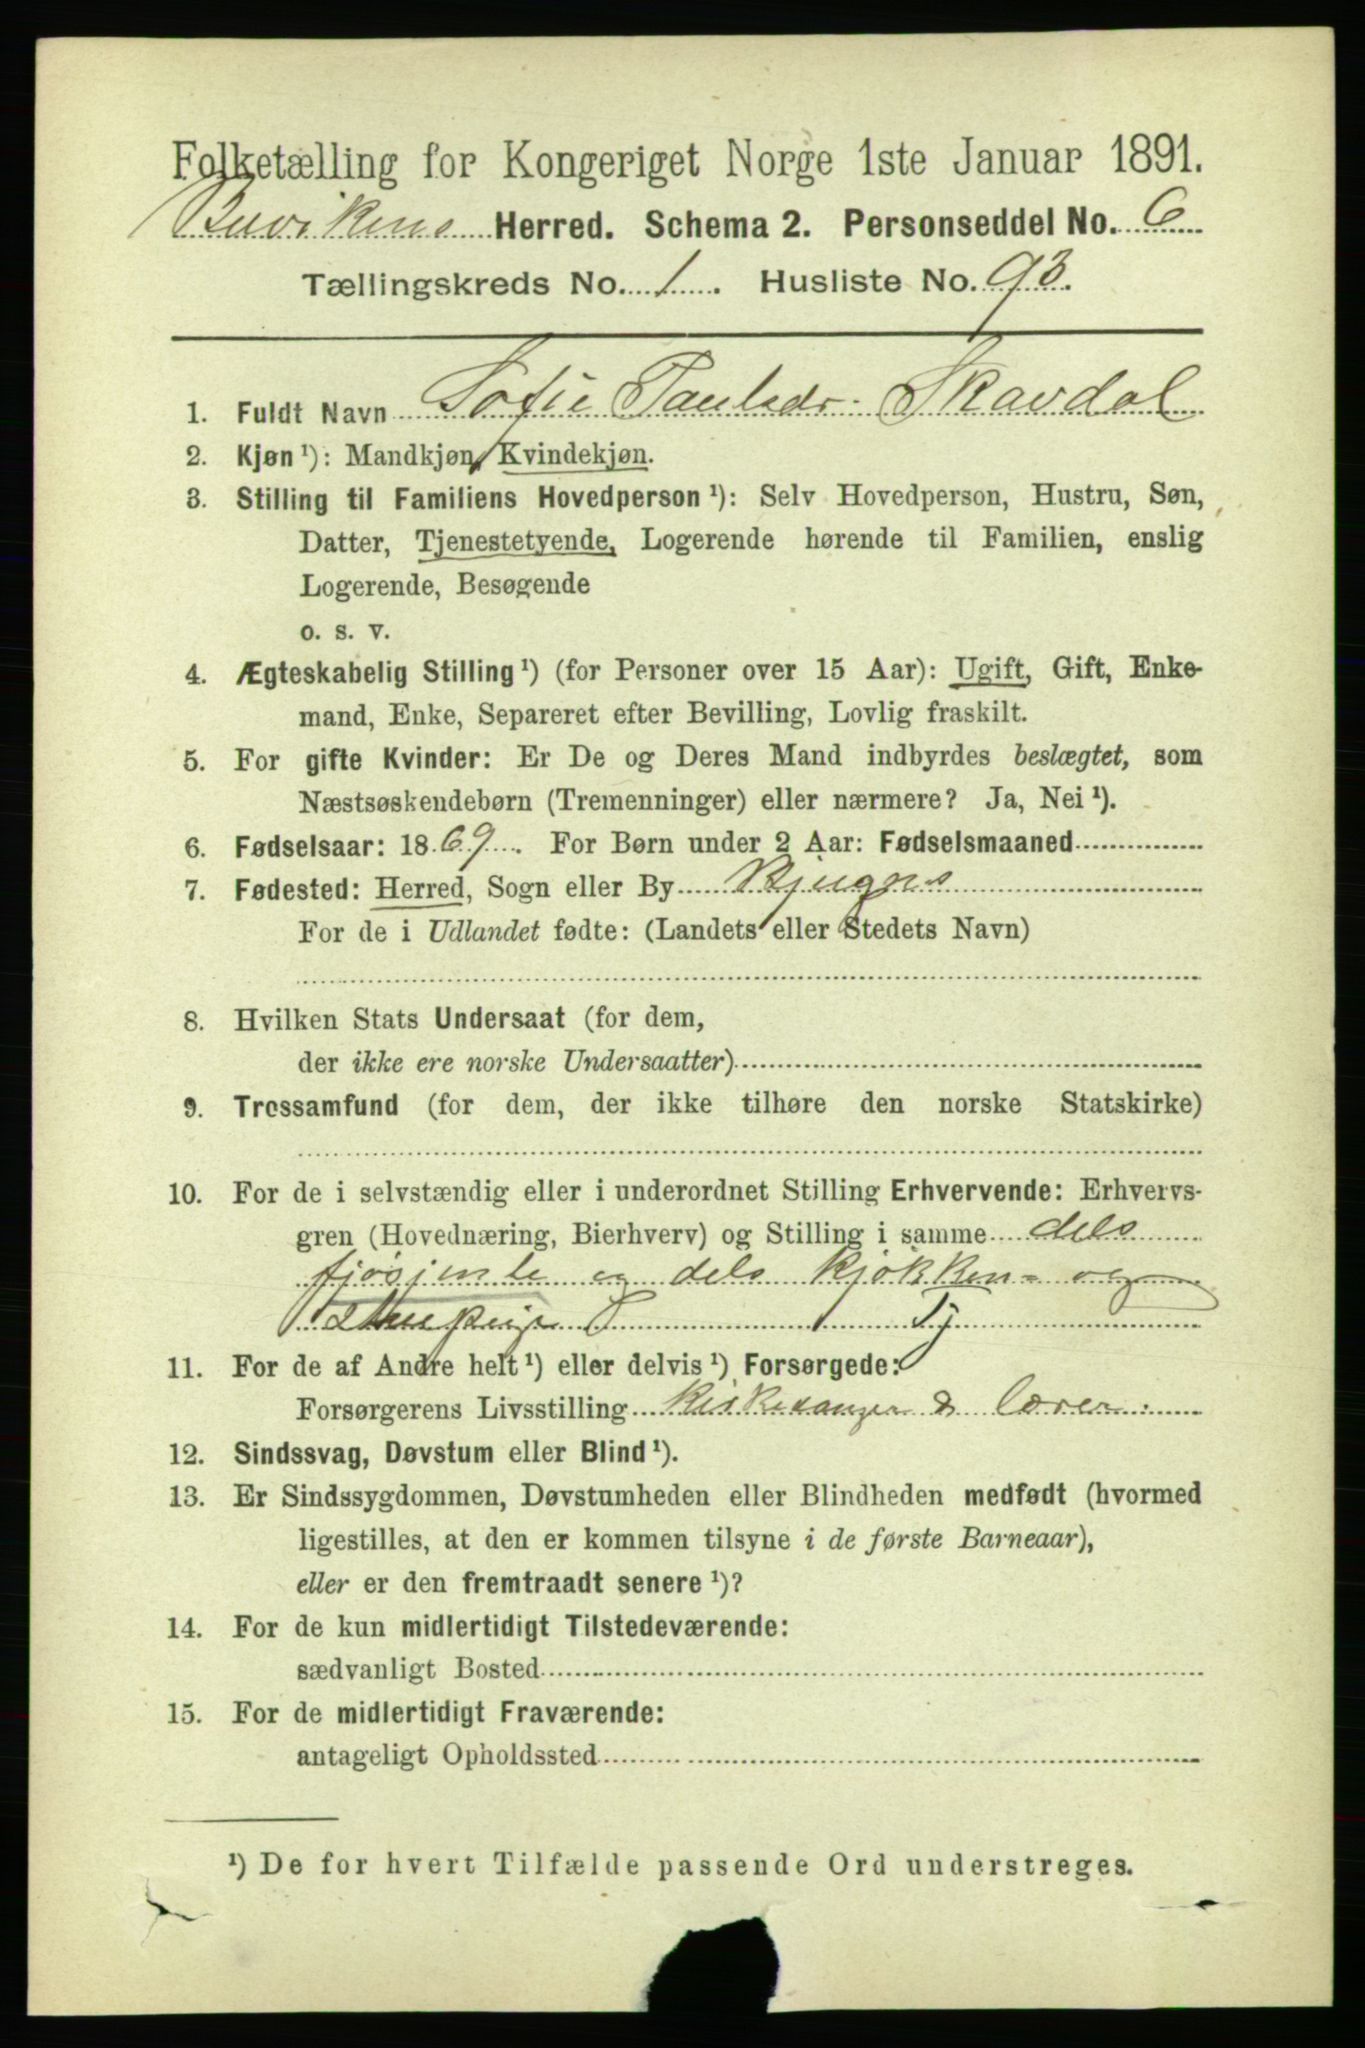 Folketælling for Kongeriget Norge 1ste Januar 1891.
Buvikens Herred. Schema 2. Personseddel No. 6
Tællingskreds No. 1. Husliste No. 93.
1. Fuldt Navn Sofie Paulsdr. Skavdal
2. Kjøn ¹): Mandkjøn, Kvindekjøn.
3. Stilling til Familiens Hovedperson ¹): Selv Hovedperson, Hustru, Søn,
Datter, Tjenestetyende, Logerende hørende til Familien, enslig
Logerende, Besøgende
o. s. v.
4. Ægteskabelig Stilling ¹) (for Personer over 15 Aar): Ugift, Gift, Enke-
mand, Enke, Separeret efter Bevilling, Lovlig fraskilt.
5. For gifte Kvinder: Er De og Deres Mand indbyrdes beslægtet, som
Næstsøskendebørn (Tremenninger) eller nærmere? Ja, Nei ¹).
6. Fødselsaar: 1869. For Børn under 2 Aar: Fødselsmaaned
7. Fødested: Herred, Sogn eller By Bjugns
For de i Udlandet fødte: (Landets eller Stedets Navn)
8. Hvilken Stats Undersaat (for dem,
der ikke ere norske Undersaatter)
9. Trossamfund (for dem, der ikke tilhøre den norske Statskirke)
10. For de i selvstændig eller i underordnet Stilling Erhvervende: Erhvervs-
gren (Hovednæring, Bierhverv) og Stilling i samme dels
fjøsjente og dels kjøkken- og
Stuepige Tj
11. For de af Andre helt ¹) eller delvis ¹) Forsørgede:
Forsørgerens Livsstilling Kirkesanger & lærer.
12. Sindssvag, Døvstum eller Blind ¹).
13. Er Sindssygdommen, Døvstumheden eller Blindheden medfødt (hvormed
ligestilles, at den er kommen tilsyne i de første Barneaar),
eller er den fremtraadt senere ¹)?
14. For de kun midlertidigt Tilstedeværende:
sædvanligt Bosted
15. For de midlertidigt Fraværende:
antageligt Opholdssted
¹) De for hvert Tilfælde passende Ord understreges.